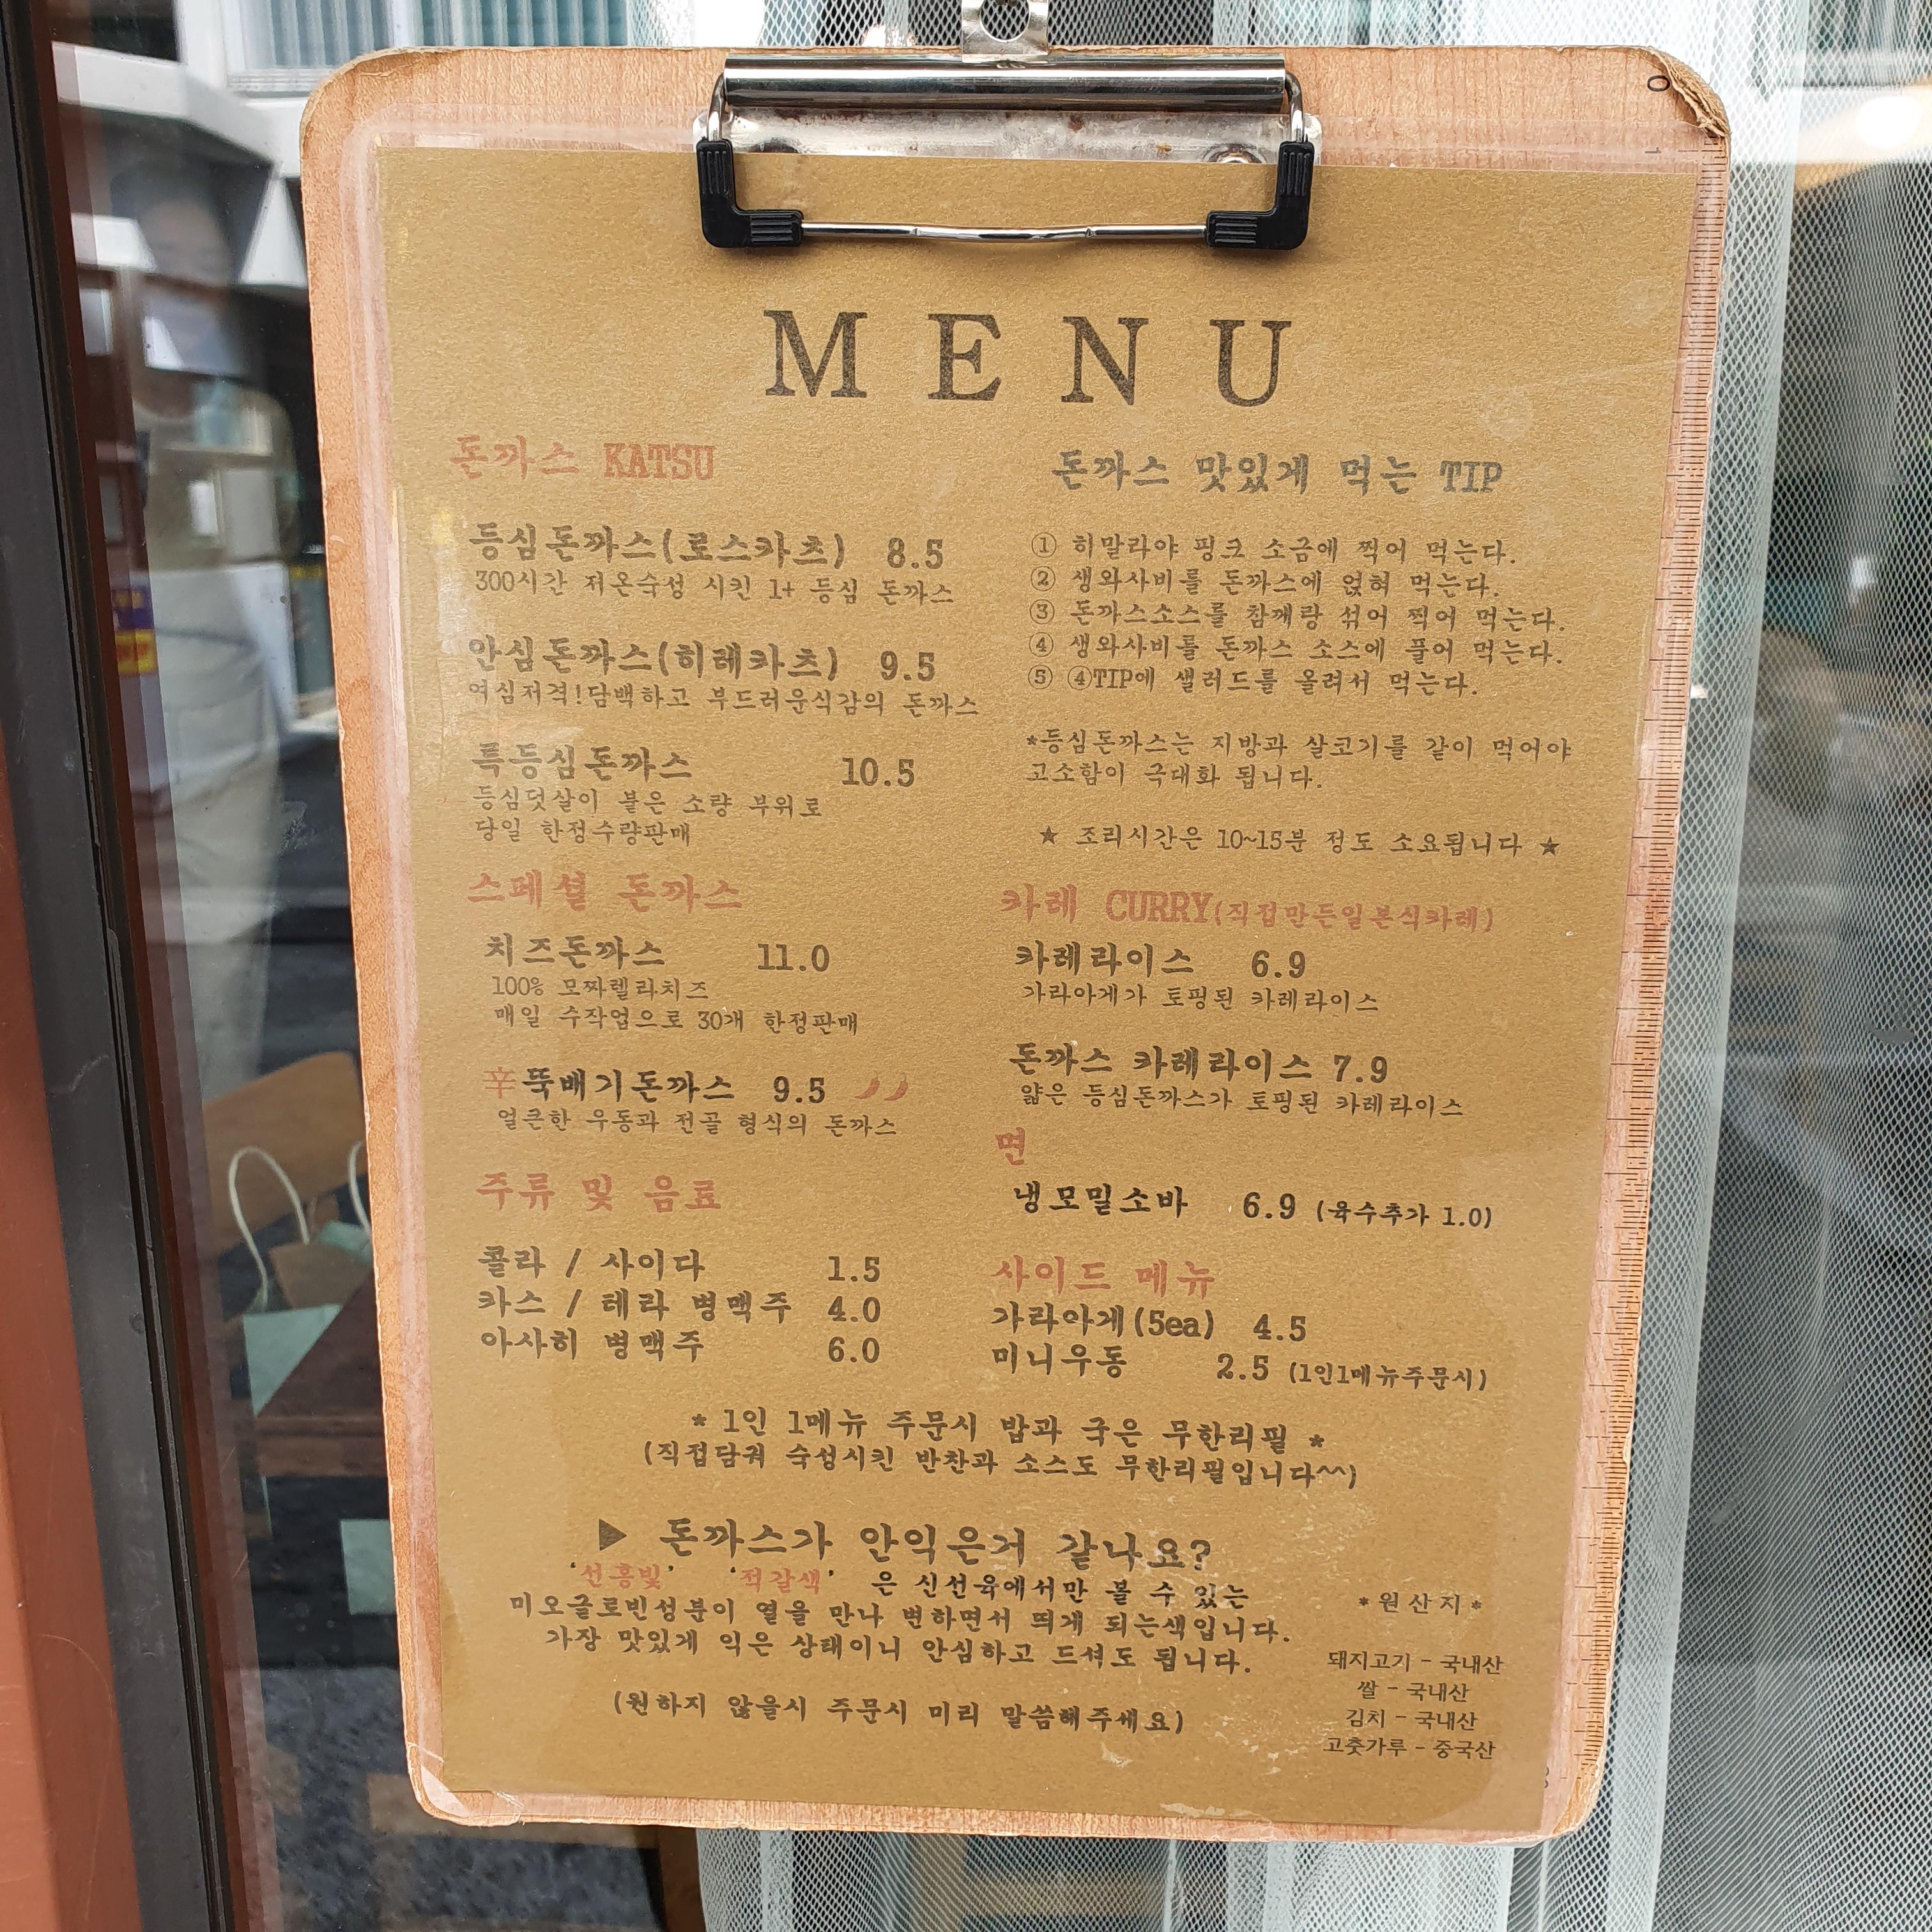 MENU
돈까스 KATSU
등심돈까스(로스카츠) 8.5
300시간 저온숙성 시킨 1+ 등심 돈까스
안심돈까스(히레카츠) 9.5
여심저격!담백하고 부드러운식감의 돈까스
특등심돈까스 10.5
등심덧살이 붙은 소량 부위로
당일 한정수량판매
스페셜 돈까스
치즈돈까스 11.0
100% 모짜렐라치즈
매일 수작업으로 30개 한정판매
辛뚝배기돈까스 9.5
얼큰한 우동과 전골 형식의 돈까스
주류 및 음료
콜라 / 사이다 1.5
카스 / 테라 병맥주 4.0
아사히 병맥주 6.0
돈까스 맛있게 먹는 TIP
① 히말라야 핑크 소금에 찍어 먹는다.
② 생와사비를 돈까스에 얹혀 먹는다.
③ 돈까스소스를 참깨랑 섞어 찍어 먹는다.
④ 생와사비를 돈까스 소스에 풀어 먹는다.
⑤ ④TIP에 샐러드를 올려서 먹는다.
*등심돈까스는 지방과 살코기를 같이 먹어야
고소함이 극대화 됩니다.
★ 조리시간은 10~15분 정도 소요됩니다 ★
카레 CURRY(직접만든일본식카레)
카레라이스 6.9
가라아게가 토핑된 카레라이스
돈까스 카레라이스 7.9
얇은 등심돈까스가 토핑된 카레라이스
면
냉모밀소바 6.9 (육수추가 1.0)
사이드 메뉴
가라아게(5ea) 4.5
미니우동 2.5 (1인1메뉴주문시)
* 1인 1메뉴 주문시 밥과 국은 무한리필 *
(직접담궈 숙성시킨 반찬과 소스도 무한리필입니다^^)
▶ 돈까스가 안익은거 같나요?
'선홍빛' '적갈색' 은 신선육에서만 볼 수 있는
미오글로빈성분이 열을 만나 변하면서 띄게 되는색입니다.
가장 맛있게 익은 상태이니 안심하고 드셔도 됩니다.
(원하지 않을시 주문시 미리 말씀해주세요)
*원산지*
돼지고기 - 국내산
쌀 - 국내산
김치 - 국내산
고춧가루 - 중국산
0
1